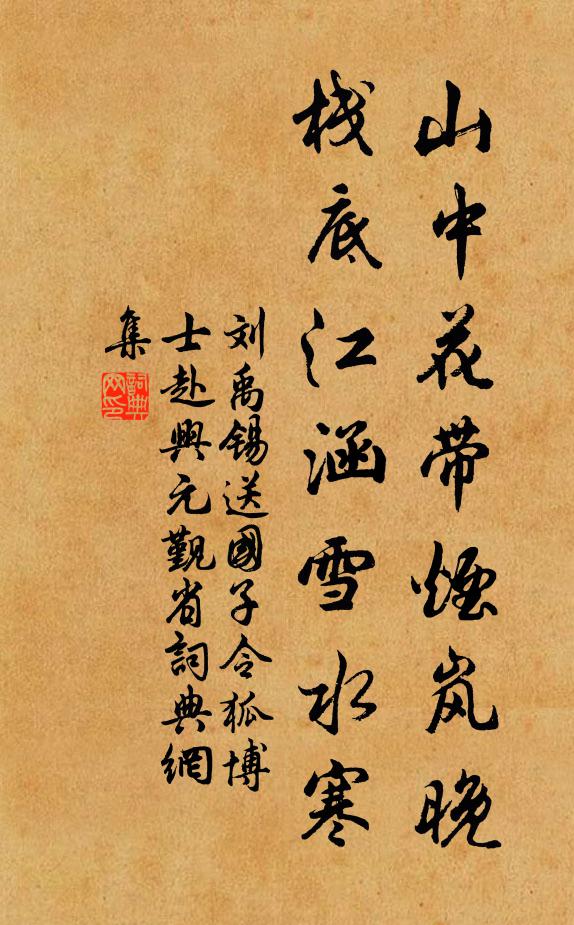 山中花带煙岚晚
栈底江涵雪水寒
刘禹锡送國子令狐博
士赴興元觐省詞典網
集
詞典
网印